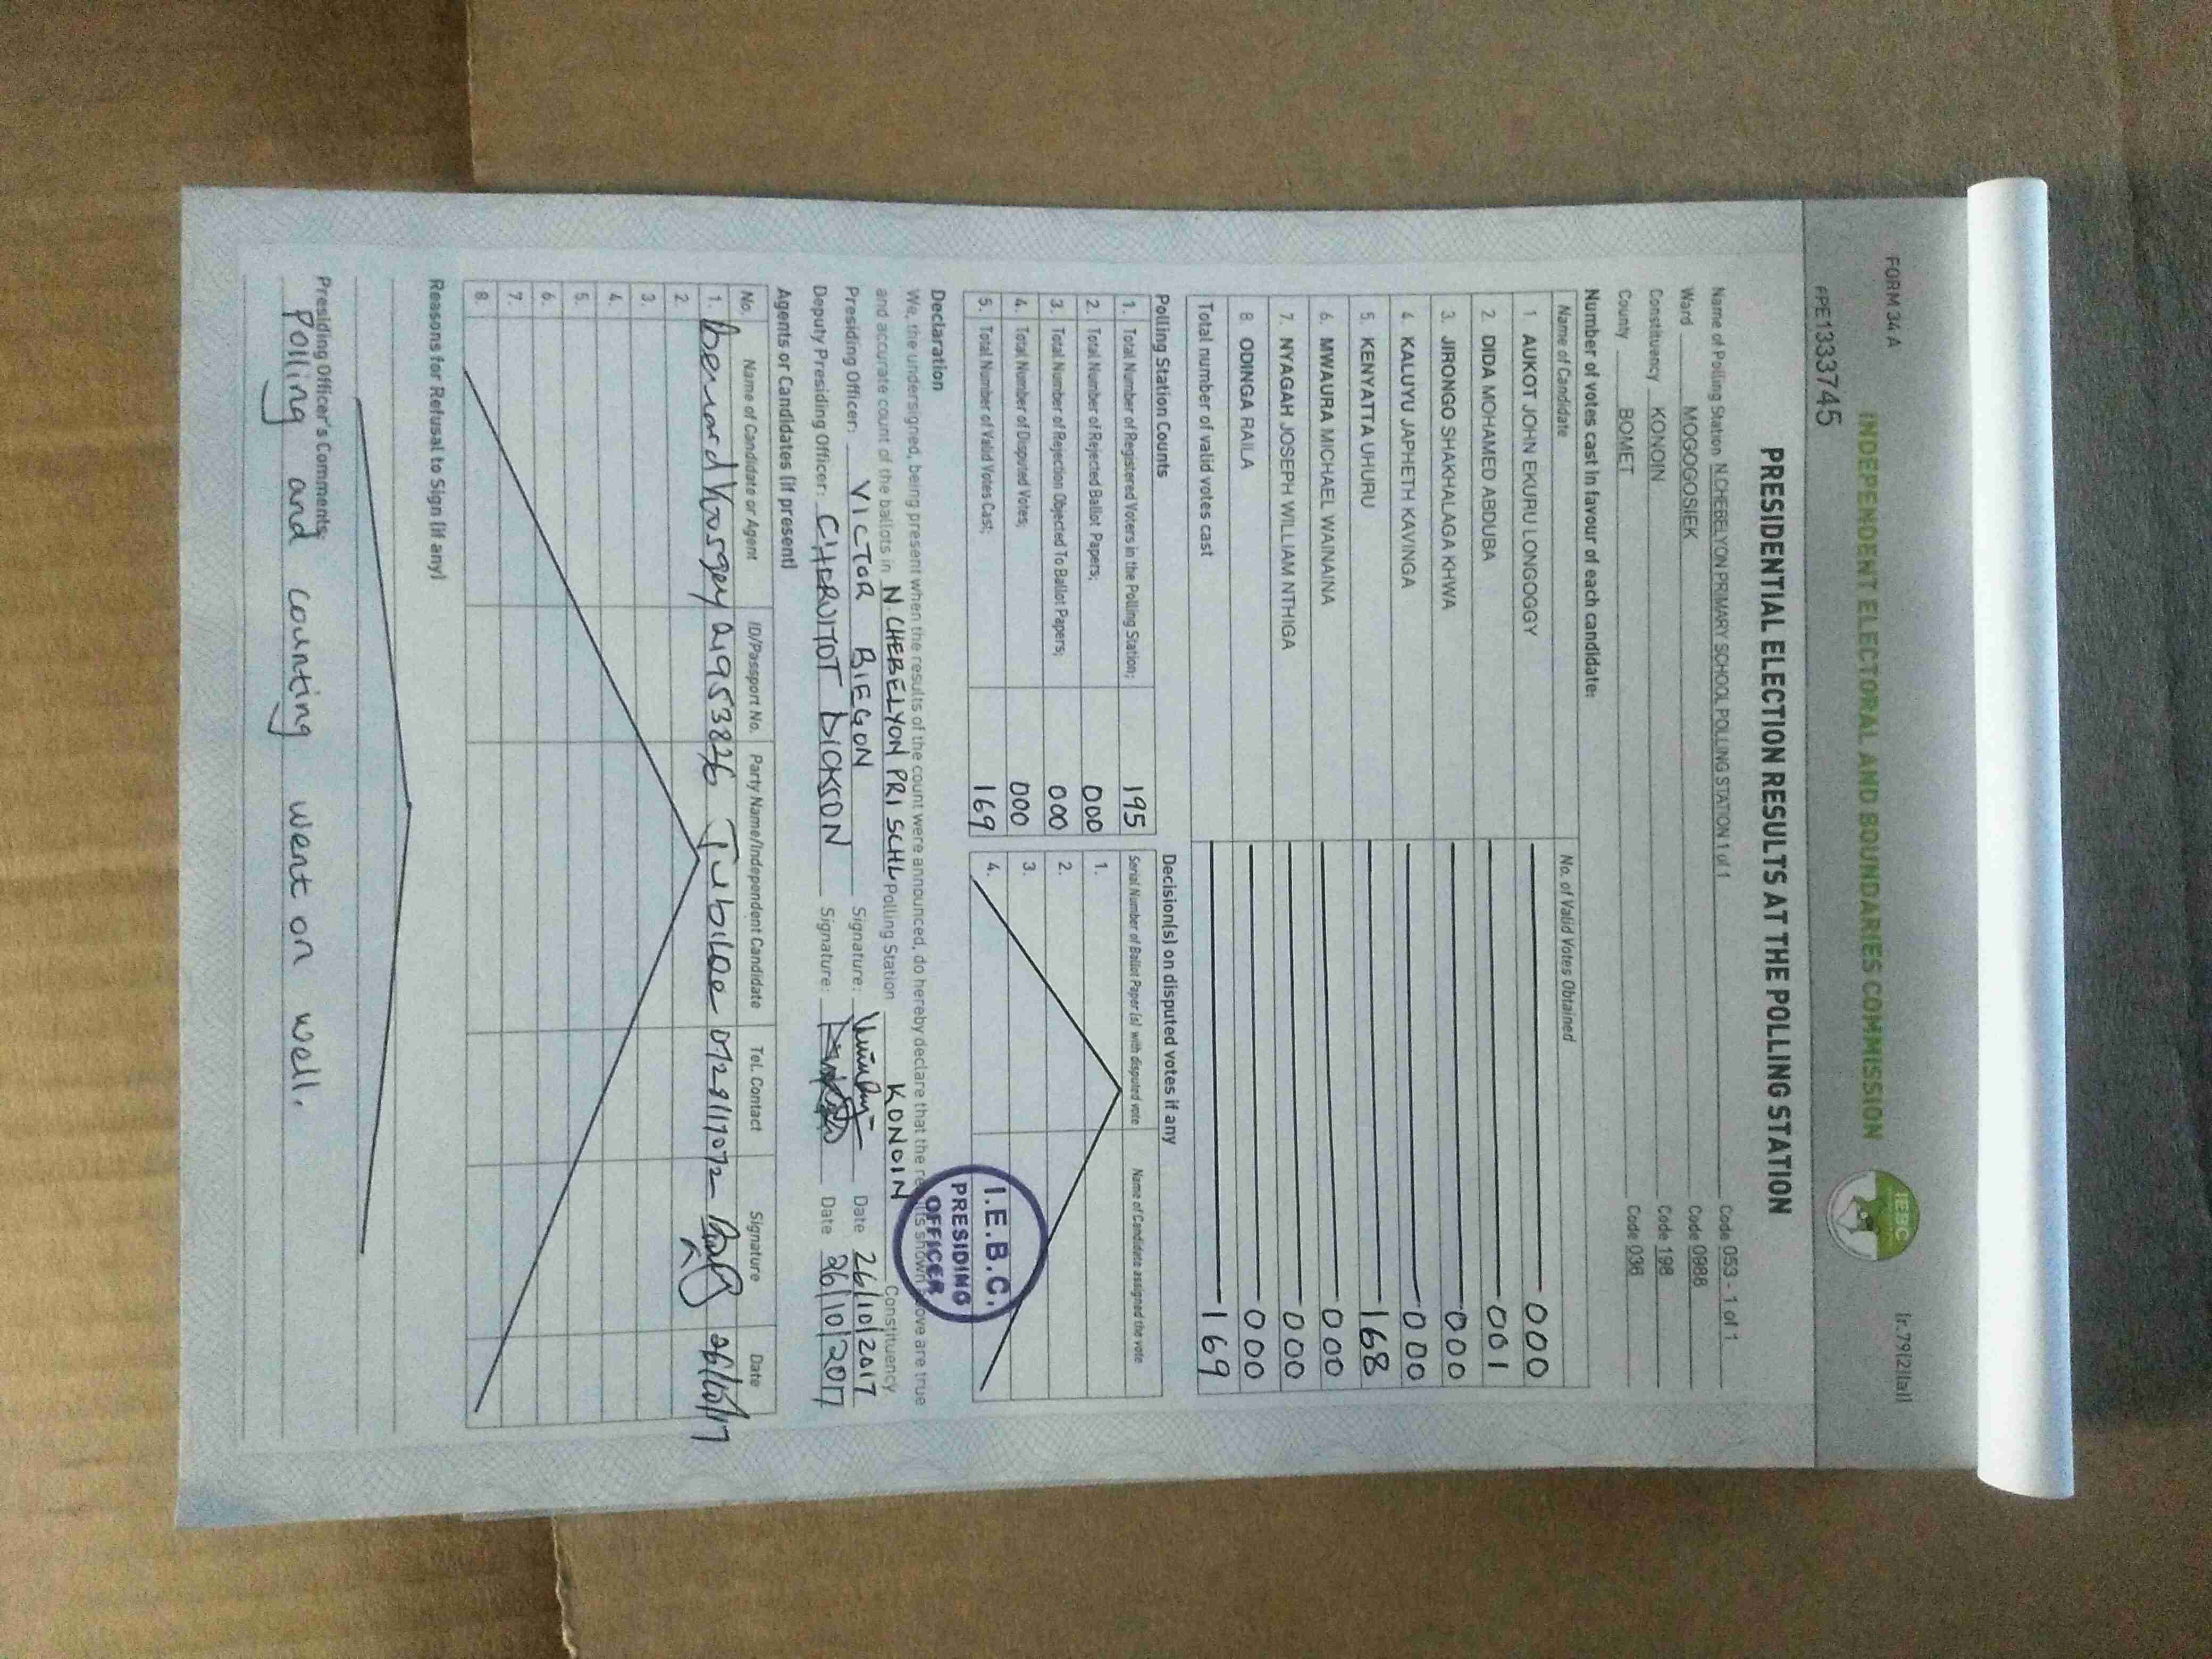 FORM 34 A
(r.79(2)(a))
INDEPENDENT ELECTORAL AND BOUNDARIES COMMISSION
IEBC
PPE1333745
PRESIDENTIAL ELECTION RESULTS AT THE POLLING STATION
Name of Polling Station N.CHEBELYON PRIMARY SCHOOL POLLING STATION 1 of 1 Code 053 - 1 of 1
Ward MOGOGOSIEK Code 0988
Constituency KONOIN Code 198
County BOMET Code 036
Number of votes cast in favour of each candidate:
Name of Candidate No. of Valid Votes Obtained
1 AUKOT JOHN EKURU LONGOGGY 000
2. DIDA MOHAMED ABDUBA 001
3. JIRONGO SHAKHALAGA KHWA 000
4. KALUYU JAPHETH KAVINGA 000
5. KENYATTA UHURU 168
6. MWAURA MICHAEL WAINAINA 000
7. NYAGAH JOSEPH WILLIAM NTHIGA 000
8. ODINGA RAILA 000
Total number of valid votes cast 169
Polling Station Counts
1. Total Number of Registered Voters in the Polling Station; 195
2. Total Number of Rejected Ballot Papers; 000
3. Total Number of Rejection Objected To Ballot Papers; 000
4. Total Number of Disputed Votes; 000
5. Total Number of Valid Votes Cast; 169
Decision(s) on disputed votes if any
Serial Number of Ballot Paper (s) with disputed vote Name of Candidate assigned the vote
1.
2.
3.
4.
I.E.B.C.
PRESIDING
OFFICER
Declaration
We, the undersigned, being present when the results of the count were announced, do hereby declare that the results shown above are true
and accurate count of the ballots in N. CHEBELYON PRI SCHL Polling Station KONOIN Constituency
Presiding Officer: VICTOR BIEGON Signature: Date 26/10/2017
Deputy Presiding Officer: CHERUITOT DICKSON Signature: Date 26/10/2017
Agents or Candidates (if present)
No. Name of Candidate or Agent ID/Passport No. Party Name/Independent Candidate Tel. Contact Signature Date
1. benard korgey 21953826 Jubilee 0728117072 26/10/17
2.
3.
4.
5.
6.
7.
8.
Reasons for Refusal to Sign (if any)
Presiding Officer's Comments;
Polling and counting went on well.